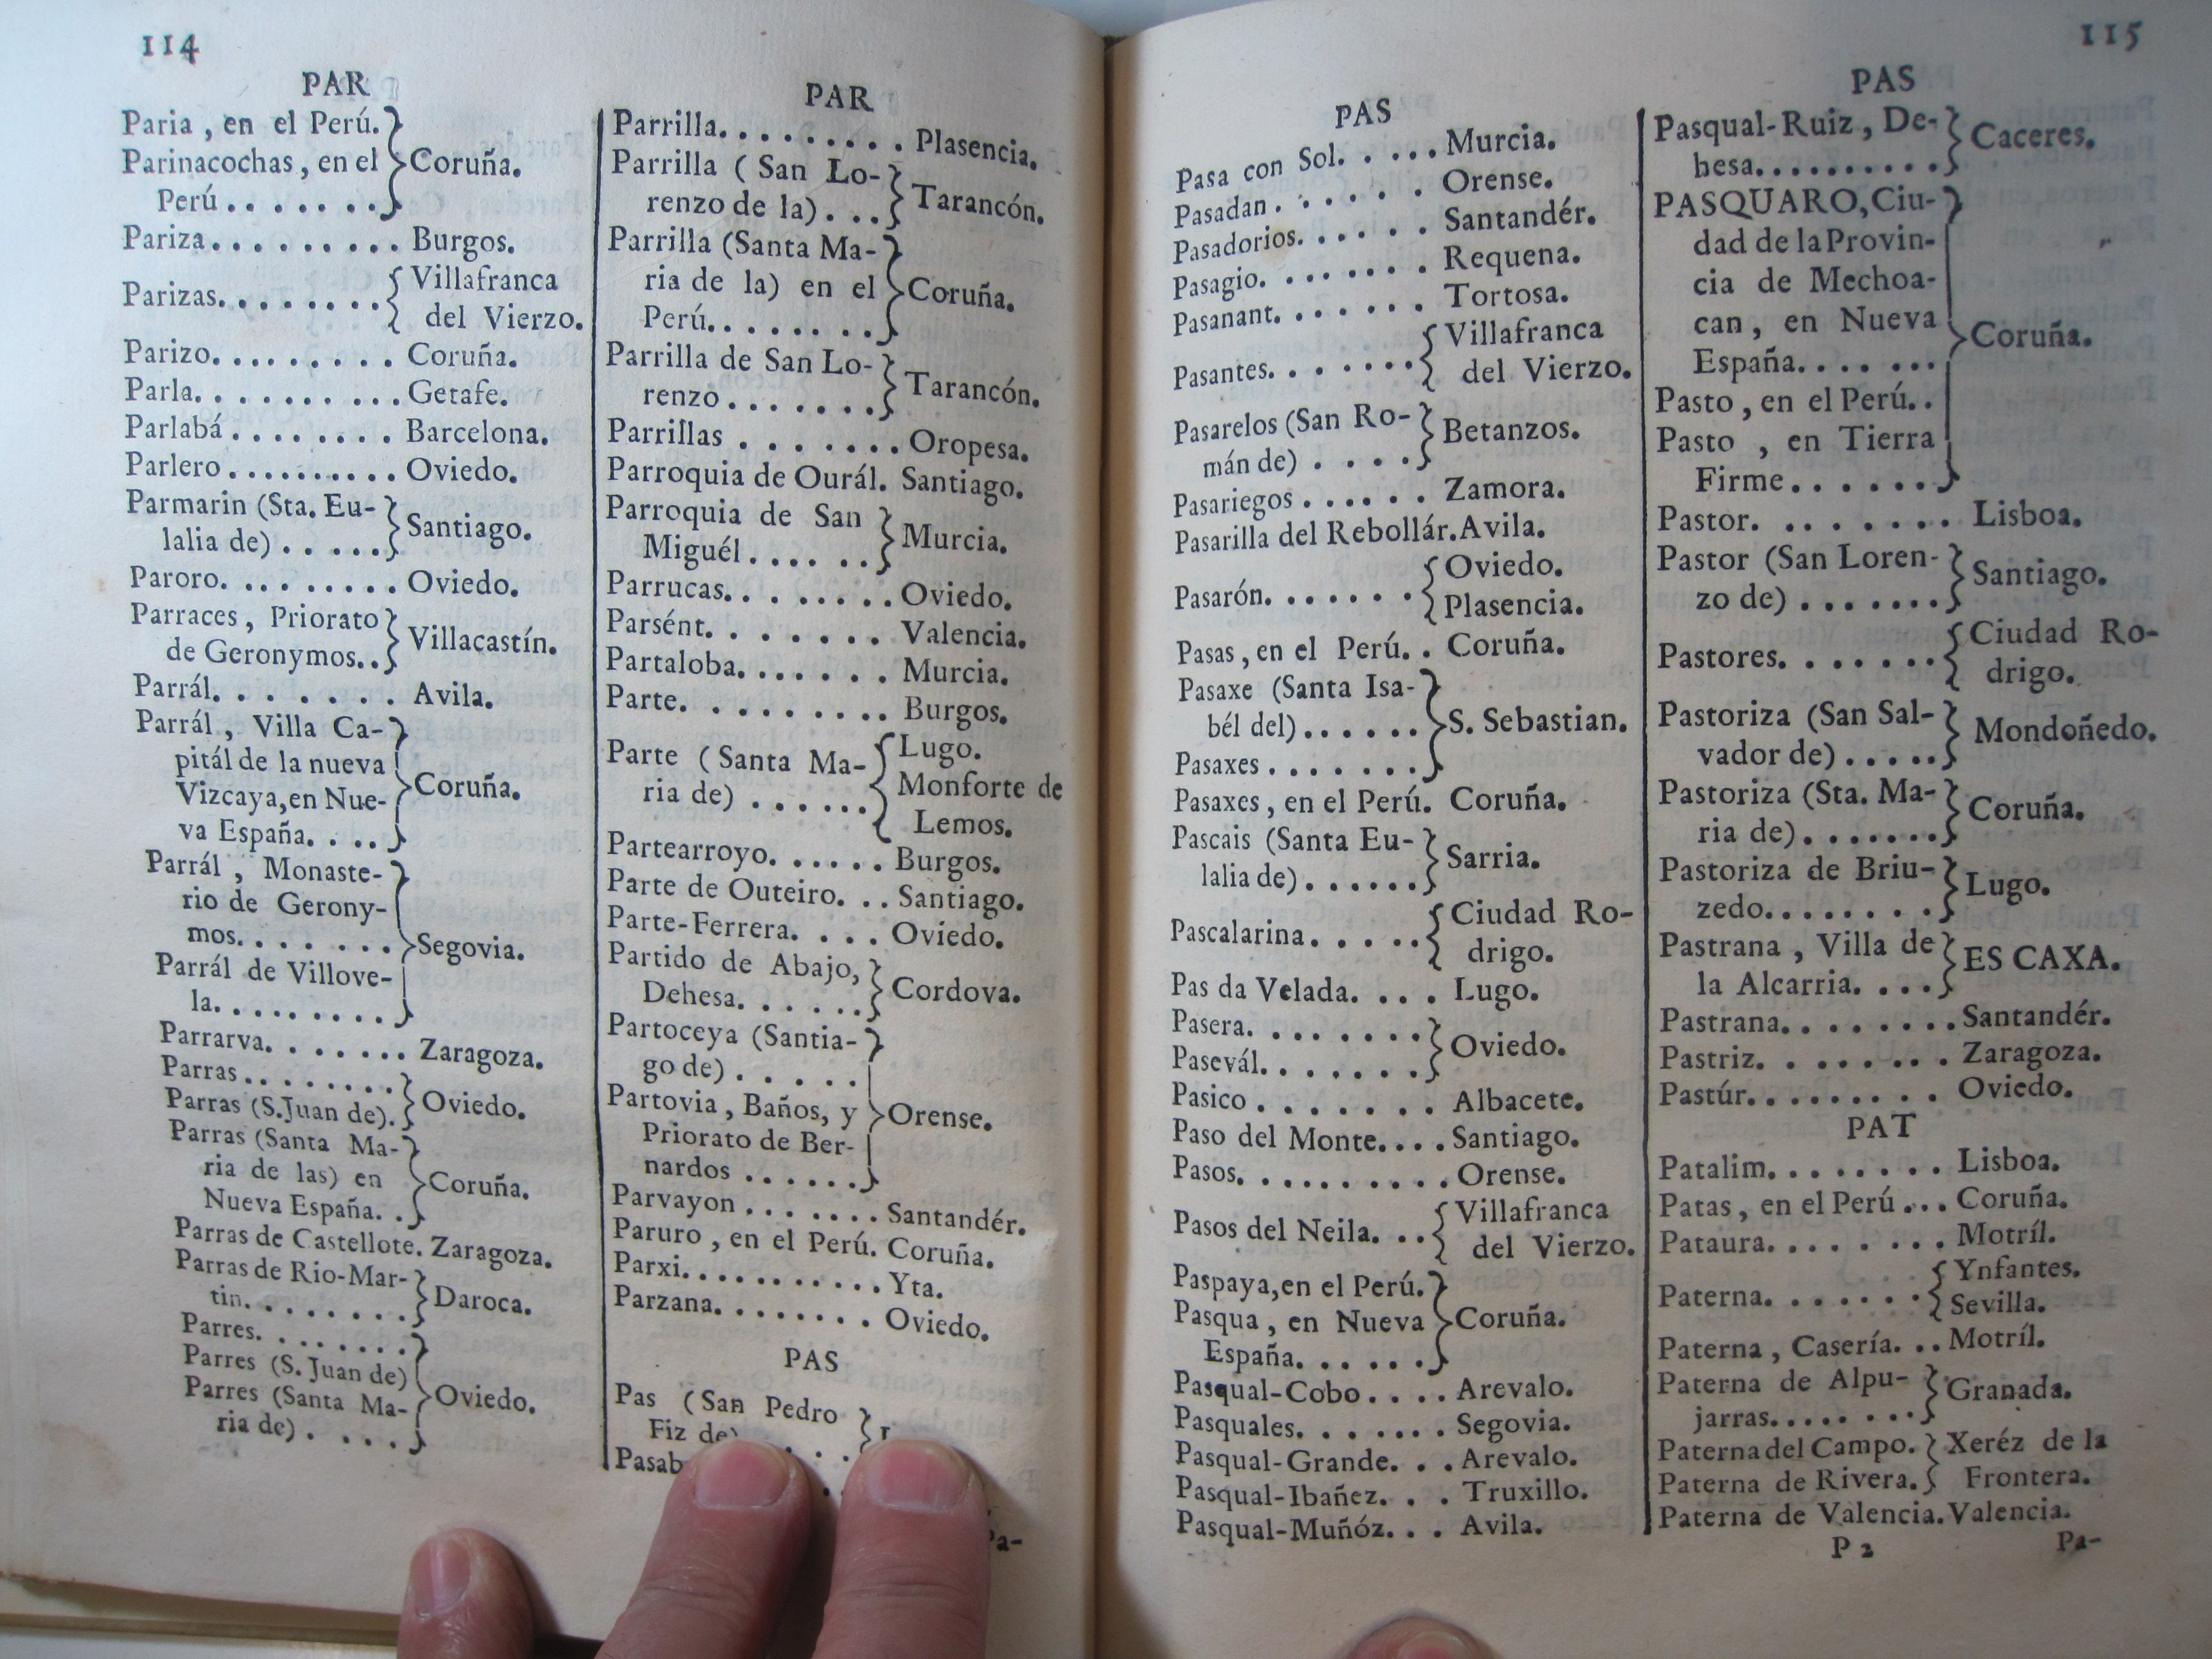 114
PAR
Paria , en el Perú.
Parinacochas , en el
Perú . . . . . . . Coruña.
Pariza. . . . . . . . . Burgos.
Parizas. . . . . . . . Villafranca
del Vierzo.
Parizo. . . . . . . . . Coruña.
Parla. . . . . . . . . . Getafe.
Parlabá . . . . . . . . Barcelona.
Parlero . . . . . . . . . . Oviedo.
Parmarin (Sta. Eu-
lalia de) . . . . . . Santiago.
Paroro. . . . . . . . . . Oviedo.
Parraces , Priorato
de Geronymos. . Villacastín.
Parrál. . . . . . . . Avila.
Parrál , Villa Ca-
pitál de la nueva
Vizcaya,en Nue-
va España. . . . Coruña.
Parrál , Monaste-
rio de Gerony-
mos. . . . . . . .
Parrál de Villove-
la. . . . . . . . . . Segovia.
Parrarva. . . . . . . . Zaragoza.
Parras . . . . . . . . .
Parras (S.Juan de). Oviedo.
Parras (Santa Ma-
ria de las) en
Nueva España. . Coruña.
Parras de Castellote. Zaragoza.
Parras de Rio-Mar-
tin. . . . . . . . . Daroca.
Parres. . . . . . . .
Parres (S. Juan de)
Parres (Santa Ma-
ria de) . . . . . Oviedo.
PAR
Parrilla. . . . . . . . . . Plasencia.
Parrilla ( San Lo-
renzo de la) . . . Tarancón.
Parrilla (Santa Ma-
ria de la) en el
Perú. . . . . . . . . Coruña.
Parrilla de San Lo-
renzo . . . . . . . Tarancón.
Parrillas . . . . . . . . Oropesa.
Parroquia de Ourál. Santiago.
Parroquia de San
Miguél . . . . . . . Murcia.
Parrucas. . . . . . . . . Oviedo.
Parsént. . . . . . . . Valencia.
Partaloba. . . . . . . . Murcia.
Parte. . . . . . . . . . Burgos.
Parte ( Santa Ma-
ria de) . . . . . . Lugo.
Monforte de
Lemos.
Partearroyo. . . . . . Burgos.
Parte de Outeiro. . . Santiago.
Parte-Ferrera. . . . . Oviedo.
Partido de Abajo,
Dehesa. . . . . . . Cordova.
Partoceya (Santia-
go de) . . . . .
Partovia , Baños, y
Priorato de Ber-
nardos . . . . . . Orense.
Parvayon . . . . . . . Santandér.
Paruro , en el Perú. Coruña.
Parxi. . . . . . . . . . . Yta.
Parzana. . . . . . . . . Oviedo.
PAS
Pas ( San Pedro
Fiz de)
Pa-
115
PAS
Pasa con Sol. . . . . . Murcia.
Pasadan . . . . . . . Orense.
Pasadorios. . . . . . . Santandér.
Pasagio. . . . . . . . Requena.
Pasanant. . . . . . . Tortosa.
Pasantes. . . . . . . . Villafranca
del Vierzo.
Pasarelos (San Ro-
mán de) . . . . . Betanzos.
Pasariegos . . . . . . Zamora.
Pasarilla del Rebollár. Avila.
Pasarón. . . . . . . . Oviedo.
Plasencia.
Pasas , en el Perú. . Coruña.
Pasaxe (Santa Isa-
bél del) . . . . . .
Pasaxes . . . . . . . S. Sebastian.
Pasaxes , en el Perú. Coruña.
Pascais (Santa Eu-
lalia de) . . . . . . Sarria.
Pascalarina. . . . . . Ciudad Ro-
drigo.
Pas da Velada. . . . Lugo.
Pasera. . . . . . . .
Pasevál. . . . . . . . Oviedo.
Pasico . . . . . . . . Albacete.
Paso del Monte. . . . Santiago.
Pasos. . . . . . . . . . Orense.
Pasos del Neila. . . . Villafranca
del Vierzo.
Paspaya,en el Perú.
Pasqua , en Nueva
España. . . . . . . Coruña.
Pasqual-Cobo . . . . Arevalo.
Pasquales. . . . . . . Segovia.
Pasqual-Grande. . . . Arevalo.
Pasqual-Ibañez. . . . Truxillo.
Pasqual-Muñóz. . . . Avila.
PAS
Pasqual-Ruiz , De-
hesa. . . . . . . . . . Caceres.
PASQUARO, Ciu-
dad de la Provin-
cia de Mechoa-
can , en Nueva
España. . . . . . .
Pasto , en el Perú. .
Pasto , en Tierra
Firme . . . . . . . Coruña.
Pastor. . . . . . . . . Lisboa.
Pastor (San Loren-
zo de) . . . . . . . Santiago.
Pastores. . . . . . . . Ciudad Ro-
drigo.
Pastoriza (San Sal-
vador de) . . . . . Mondoñedo.
Pastoriza (Sta. Ma-
ria de) . . . . . . . Coruña.
Pastoriza de Briu-
zedo. . . . . . . . . Lugo.
Pastrana , Villa de
la Alcarria. . . . . ES CAXA.
Pastrana. . . . . . . . . Santandér.
Pastriz. . . . . . . . . Zaragoza.
Pastúr. . . . . . . . . . Oviedo.
PAT
Patalim. . . . . . . . . Lisboa.
Patas , en el Perú . . . Coruña.
Pataura. . . . . . . . . Motríl.
Paterna. . . . . . . . Ynfantes.
Sevilla.
Paterna , Casería. . . Motríl.
Paterna de Alpu-
jarras. . . . . . . . . Granada.
Paterna del Campo.
Paterna de Rivera. Xeréz de la
Frontera.
Paterna de Valencia. Valencia.
P 2
Pa-